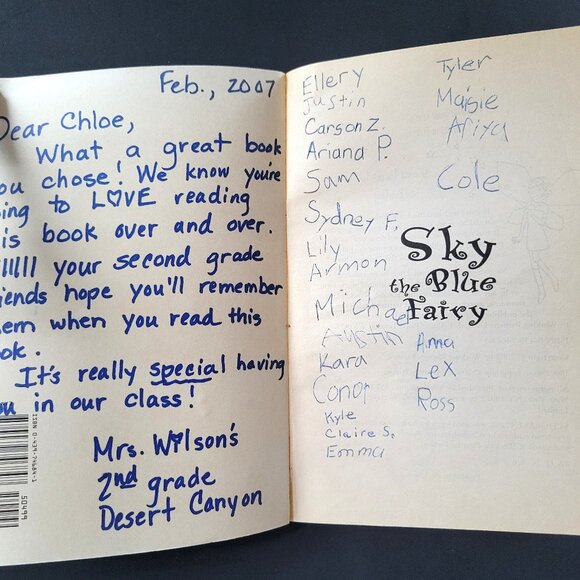 Feb., 2007
Dear Chloe,
What a great book
you chose! We know you're
going to LOVE reading
this book over and over.
Allllll your second grade
friends hope you'll remember
them when you read this
book.
It's really special having
you in our class!
Mrs. Wilson's
2nd grade
Desert Canyon
ISBN 0-439-74684-1
50499
Ellery
Justin
Carson Z.
Ariana P.
Sam
Sydney F.
Lily
Armon
Michael
Austin
Kara
Conor
Kyle
Claire S.
Emma
Tyler
Maisie
Afiya
Cole
Sky
the Blue
Fairy
Anna
Lex
Ross